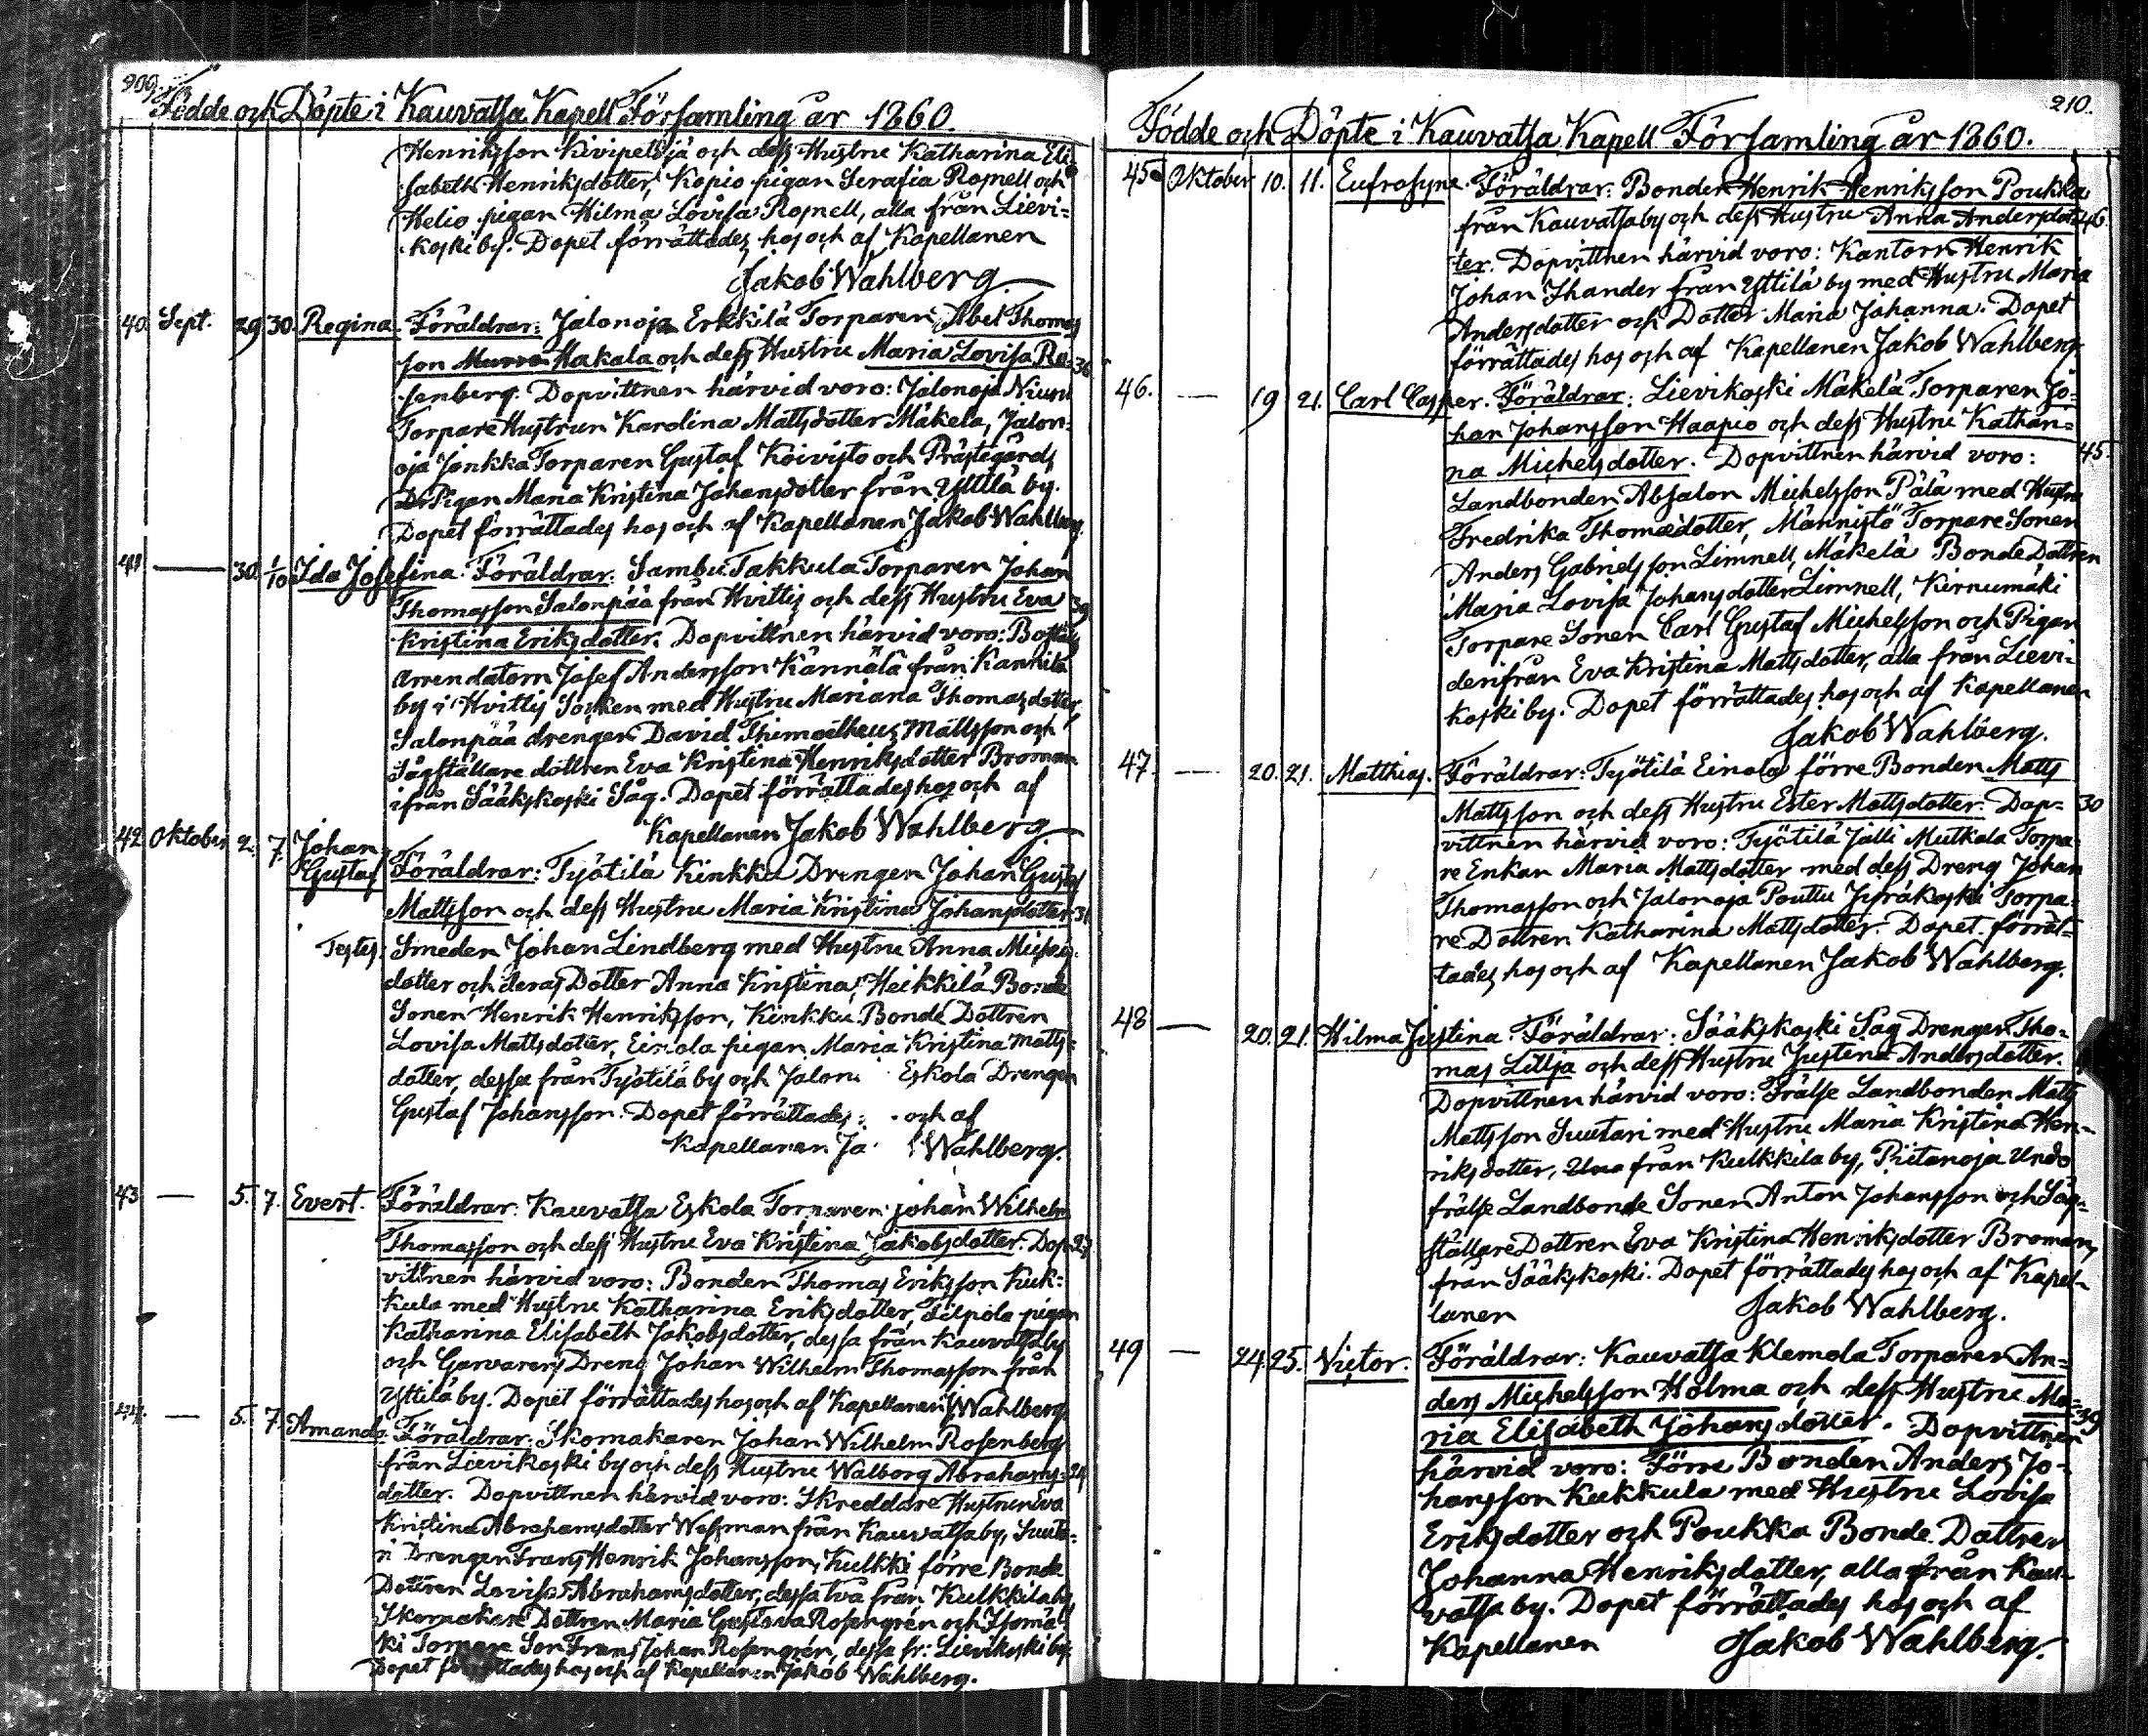 209
Födde och Döpte i Kauvatsa Kapell Församling år 1860.
Henriksson Kivipelsjä och dess Hustru Katharina Eli-
sabeth Henriksdotter, Kopio pigan Serafia Rosnell och
Helio pigan Hilma Lovisa Rosnell, alla från Lievi-
koski by. Dopet förrättades hos och af Kapellanen
Jakob Wahlberg
40. Sept. 29 30. Regina. Föräldrar: Jalonoja Erkkilä Torparen Abel Thomas
son Makala och dess Hustru Maria Lovisa Ro- 36
senberg. Dopvittnen härvid voro: Jalonoja Niuu
Torpare Hustrun Karolina Mattsdotter Mäkelä, Jalon-
oja Jonkka Torparen Gustaf Koivisto och Prästegårds
Pigan Maria Kristina Johansdotter från Yttilä by.
Dopet förrättades hos och af Kapellanen Jakob Wahlberg.
41 — 30. 1/10 Ida Josefina. Föräldrar: Sambu Takkula Torparen Johan
Thomasson Salonpää från Hvittis och dess Hustru Eva 39
Kristina Eriksdotter. Dopvittnen härvid voro: Boställs
Arrendatorn Josef Andersson Kännälä från Kannila
by i Hvittis Socken med Hustru Mariana Thomasdotter,
Salonpää drengen David Thimotheus Mattsson och
Sågställare dottren Eva Kristina Henriksdotter Broman
ifrån Sääkskoski Såg. Dopet förrättades hos och af
Kapellanen Jakob Wahlberg
42 Oktober 2. 7. Johan
Gustaf Föräldrar: Työtilä Kinkka Drengen Johan Gustaf
Mattsson och dess Hustru Maria Kristina Johansdotter 31
Testes: Smeden Johan Lindberg med Hustru Anna Michels-
dotter och deras Dotter Anna Kristina, Heikkilä Bonde
Sonen Henrik Henriksson, Kinkku Bonde Dottren
Lovisa Mattsdotter, Einola pigan Maria Kristina Matts-
dotter, dessa från Työtilä by och Jalon Eskola Drengen
Gustaf Johansson. Dopet förrättades och af
Kapellanen Ja Wahlberg.
43 — 5. 7. Evert. Föräldrar: Kauvatsa Eskola Torparen Johan Wilhelm
Thomasson och dess Hustru Eva Kristina Jakobsdotter. Dop- 27
vittnen härvid voro: Bonden Thomas Eriksson Kuk-
kula med Hustru Katharina Eriksdotter, Filpola pigan
Katharina Elisabeth Jakobsdotter, dessa från Kauvatsa by
och Garvarens Dreng Johan Wilhelm Thomasson från
Yttilä by. Dopet förrättades hos och af Kapellanen J Wahlberg
44. — 5. 7. Amanda. Föräldrar: Skomakaren Johan Wilhelm Rosenberg
från Lievikoski by och dess Hustru Walborg Abrahams- 24
dotter. Dopvittnen härvid voro: Skreddare Hustrun Eva
Kristina Abrahamsdotter Wessman från Kauvatsa by, Suuta-
ri Drengen Frans Henrik Johansson, Kulkki förre Bonde
Dottren Lovisa Abrahamsdotter, dessa två från Kulkkila by
Skomakare Dottren Maria Gustava Rosengrén och Isomä-
ki Torpare Son Frans Johan Rosengrén, dessa fr: Lievikoski by.
Dopet förrättades hos och af Kapellanen Jakob Wahlberg.
210.
Födde och Döpte i Kauvatsa Kapell Församling år 1860.
45 Oktober 10. 11. Eufrosyne. Föräldrar: Bonden Henrik Henriksson Poukka
från Kauvatsa by och dess Hustru Anna Andersdot- 46.
ter. Dopvittnen härvid voro: Kantorn Henrik
Johan Ihander från Yttilä by med Hustru Maria
Andersdotter och Dotter Maria Johanna. Dopet
förrättades hos och af Kapellanen Jakob Wahlberg
46. — 19 21. Carl Casper. Föräldrar: Lievikoski Mäkelä Torparen Jo-
han Johansson Haapio och dess Hustru Kathari-
na Michelsdotter. Dopvittnen härvid voro: 45.
Landbonden Absalon Michelsson Pälä med Hustru
Fredrika Thomædotter, Männistö Torpare Sonen
Anders Gabrielsson Limnell, Mäkelä Bonde Dottren
Maria Lovisa Johansdotter Limnell, Kirnumäki
Torpare Sonen Carl Gustaf Michelsson och Pigan
derifrån Eva Kristina Mattsdotter, alla från Lievi-
koski by. Dopet förrättades hos och af Kapellanen
Jakob Wahlberg.
47. — 20. 21. Matthias. Föräldrar: Työtilä Einola förre Bonden Matts
Mattsson och dess Hustru Ester Mattsdotter. Dop- 30
vittnen härvid voro: Työtilä Jalli Mutkala Torpa-
re Enkan Maria Mattsdotter med dess Dreng Johan
Thomasson och Jalonoja Pouttu Jyräkoski Torpa-
re Dottren Katharina Mattsdotter. Dopet förrät-
tades hos och af Kapellanen Jakob Wahlberg.
48 — 20. 21. Hilma Justina. Föräldrar: Sääkskoski Såg Drengen Tho-
mas Lillja och dess Hustru Justina Andersdotter.
Dopvittnen härvid voro: Frälse Landbonden Matts
Mattsson Suutari med Hustru Maria Kristina Hen-
riksdotter, från Kulkkila by, Pietanoja Undo
frälse Landbonde Sonen Anton Johansson och Såg-
ställare Dottren Eva Kristina Henriksdotter Broman,
från Sääkskoski. Dopet förrättades hos och af Kapel-
lanen Jakob Wahlberg.
49 — 24 25. Victor. Föräldrar: Kauvatsa Klemola Torparen An-
ders Michelsson Holma och dess Hustru Ma- 39
ria Elisabeth Johansdotter. Dopvittnen
härvid voro: Förre Bonden Anders Jo-
hansson Kukkula med Hustru Lovisa
Eriksdotter och Poukka Bonde Dottren
Johanna Henriksdotter, alla från Kau-
vatsa by. Dopet förrättades hos och af
Kapellanen Jakob Wahlberg.